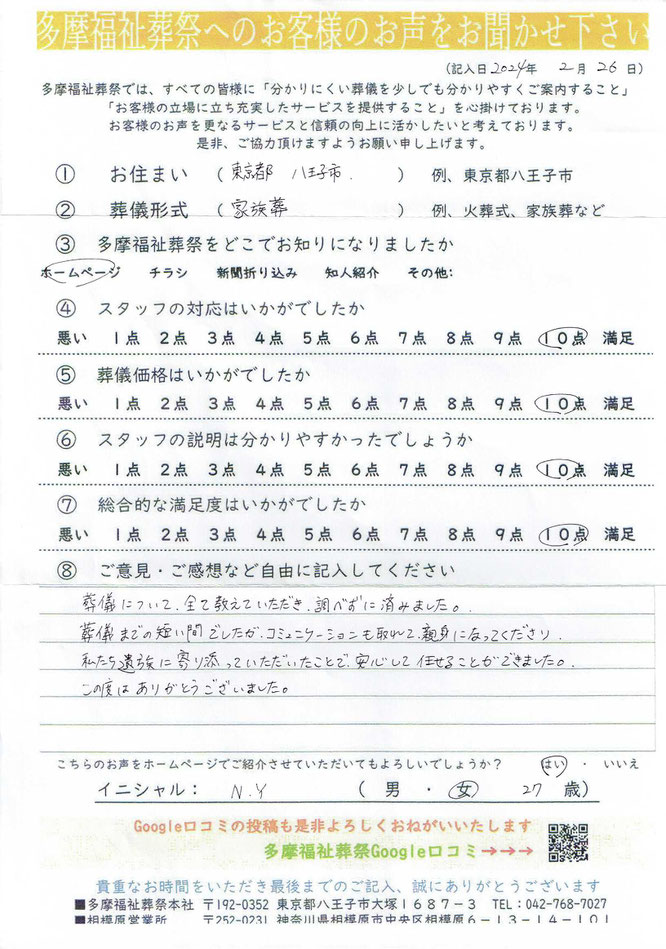 多摩福祉葬祭へのお客様のお声をお聞かせ下さい
(記入日2024年 2月 26日)
多摩福祉葬祭では、すべての皆様に「分かりにくい葬儀を少しでも分かりやすくご案内すること」
「お客様の立場に立ち充実したサービスを提供すること」を心掛けております。
お客様のお声を更なるサービスと信頼の向上に活かしたいと考えております。
是非、ご協力頂けますようお願い申し上げます。
① お住まい (東京都 八王子市.) 例、東京都八王子市
② 葬儀形式 (家族葬) 例、火葬式、家族葬など
③ 多摩福祉葬祭をどこでお知りになりましたか
ホームページ チラシ 新聞折り込み 知人紹介 その他:
④ スタッフの対応はいかがでしたか
悪い 1点 2点 3点 4点 5点 6点 7点 8点 9点 10点 満足
⑤ 葬儀価格はいかがでしたか
悪い 1点 2点 3点 4点 5点 6点 7点 8点 9点 10点 満足
⑥ スタッフの説明は分かりやすかったでしょうか
悪い 1点 2点 3点 4点 5点 6点 7点 8点 9点 10点 満足
⑦ 総合的な満足度はいかがでしたか
悪い 1点 2点 3点 4点 5点 6点 7点 8点 9点 10点 満足
⑧ ご意見・ご感想など自由に記入してください
葬儀について、全て教えていただき、調べずに済みました。
葬儀までの短い間でしたが、コミュニケーションも取れて、親身になってくださり、
私たち遺族に寄り添っていただいたことで、安心して任せることができました。
この度はありがとうございました。
こちらのお声をホームページでご紹介させていただいてもよろしいでしょうか? はい ・ いいえ
イニシャル: N.Y (男 ・ 女 27 歳)
Google口コミの投稿も是非よろしくおねがいいたします
多摩福祉葬祭Google口コミ→→→
貴重なお時間をいただき最後までのご記入、誠にありがとうございます
■多摩福祉葬祭本社 〒192-0352 東京都八王子市大塚1687-3 TEL:042-768-7027
■相模原営業所 〒252-0231 神奈川県相模原市中央区相模原6-13-14-101